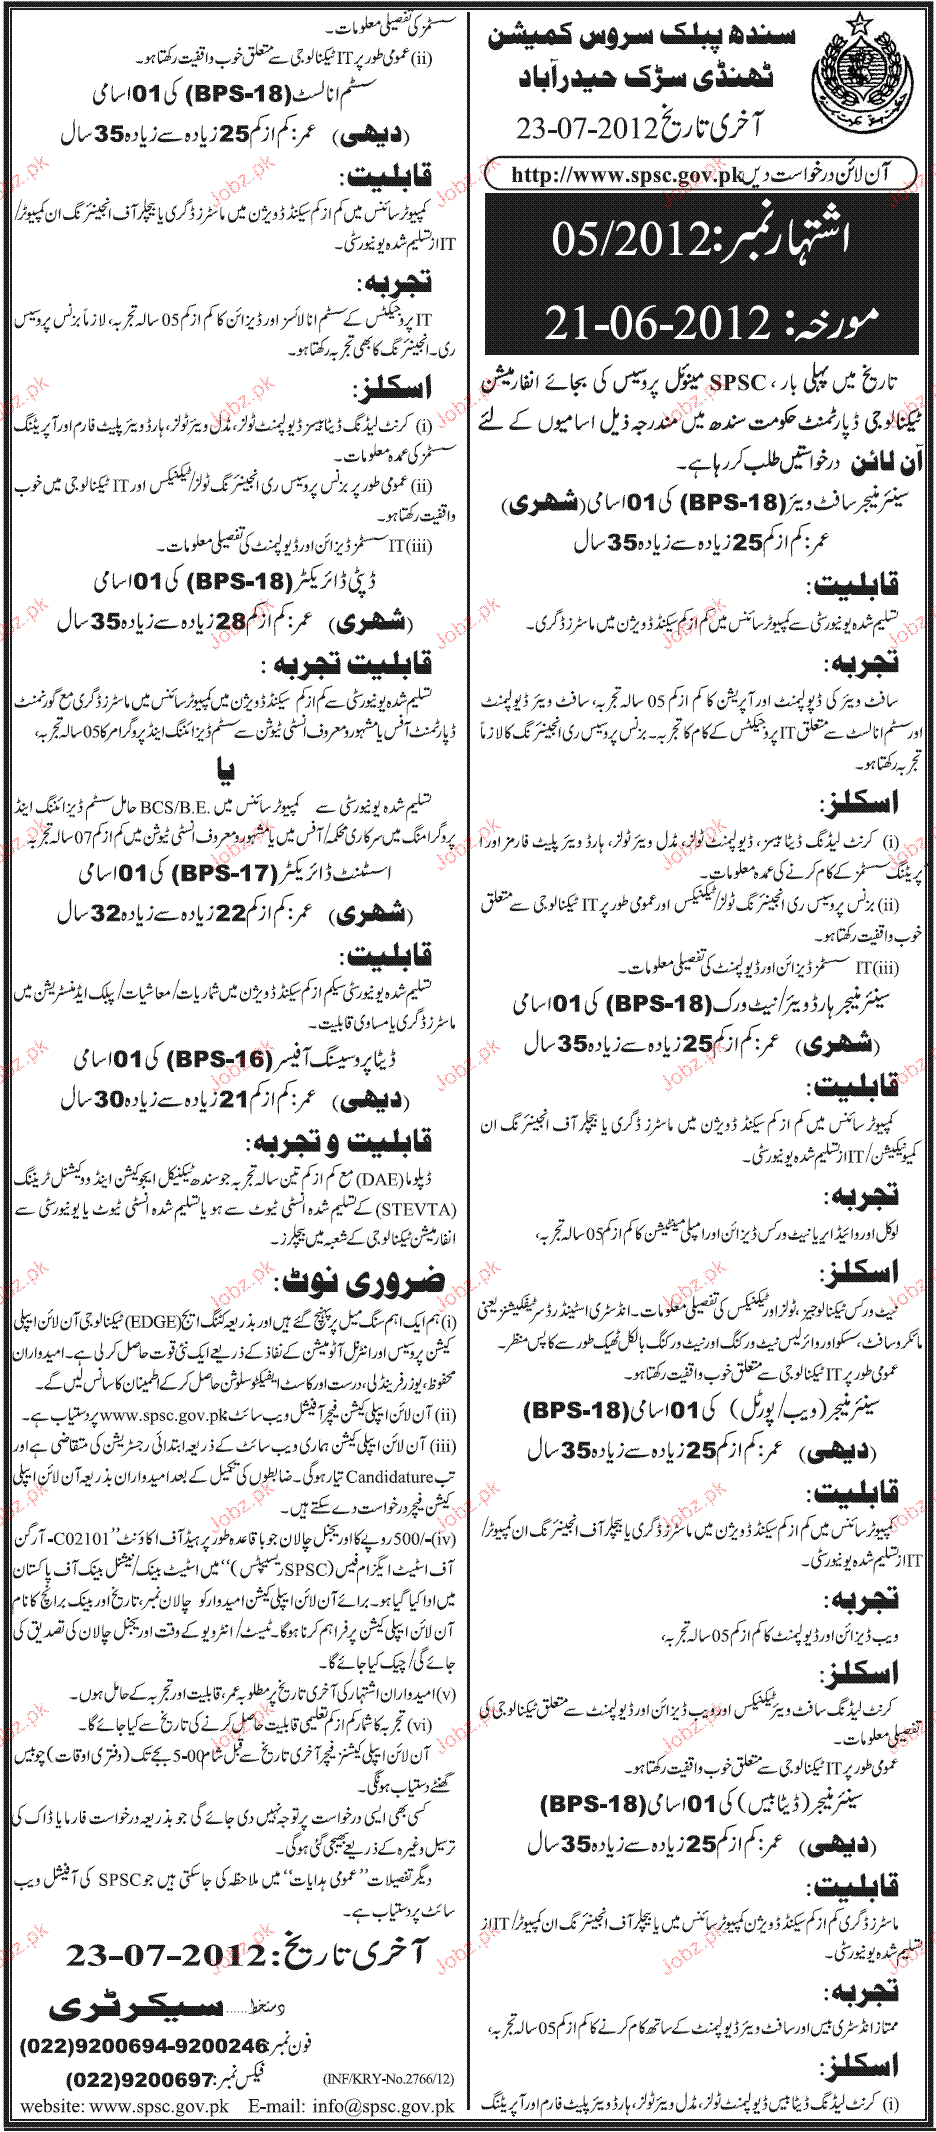 سندھ پبلک سروس کمیشن
ٹھنڈی سڑک حیدرآباد
آخری تاریخ 23-07-2012
آن لائن درخواست دیں http://www.spsc.gov.pk
اشتہار نمبر: 05/2012
مورخہ: 21-06-2012
تاریخ میں پہلی بار، SPSC مینوئل پروسیس کی بجائے انفارمیشن
ٹیکنالوجی ڈپارٹمنٹ حکومت سندھ میں مندرجہ ذیل اسامیوں کے لئے
آن لائن درخواستیں طلب کر رہا ہے۔
سینئر منیجر سافٹ ویئر (BPS-18) کی 01 اسامی (شھری)
عمر: کم از کم 25 زیادہ سے زیادہ 35 سال
قابلیت:
تسلیم شدہ یونیورسٹی سے کمپیوٹر سائنس میں کم از کم سیکنڈ ڈویژن میں ماسٹرز ڈگری۔
تجربہ:
سافٹ ویئر کی ڈیولپمنٹ اور آپریشن کا کم از کم 05 سالہ تجربہ، سافٹ ویئر ڈیولپمنٹ
اور سسٹم انالسٹ سے متعلق IT پروجیکٹس کے کام کا تجربہ۔ بزنس پروسیس ری انجینئرنگ کا لازماً
تجربہ رکھتا ہو۔
اسکلز:
(i) کرنٹ لیڈنگ ڈیٹا بیسز، ڈیولپمنٹ ٹولز، مڈل ویئر ٹولز، ہارڈ ویئر پلیٹ فارمز اور ا
پریٹنگ سسٹمز کے کام کرنے کی عمدہ معلومات۔
(ii) بزنس پروسیس ری انجینئرنگ ٹولز/ٹیکنیکس اور عمومی طور پر IT ٹیکنالوجی سے متعلق
خوب واقفیت رکھتا ہو۔
(iii) IT سسٹمز ڈیزائن اور ڈیولپمنٹ کی تفصیلی معلومات۔
سینئر منیجر ہارڈ ویئر/نیٹ ورک (BPS-18) کی 01 اسامی
(شھری) عمر: کم از کم 25 زیادہ سے زیادہ 35 سال
قابلیت:
کمپیوٹر سائنس میں کم از کم سیکنڈ ڈویژن میں ماسٹرز ڈگری یا بیچلر آف انجینئرنگ ان
کمیونیکیشن/IT از تسلیم شدہ یونیورسٹی۔
تجربہ:
لوکل اور وائیڈ ایریا نیٹ ورکس ڈیزائن اور امپلی مینٹیشن کا کم از کم 05 سالہ تجربہ،
اسکلز:
نیٹ ورکس ٹیکنالوجیز، ٹولز اور ٹیکنیکس کی تفصیلی معلومات۔ انڈسٹری اسٹینڈرڈ سرٹیفکیشنز یعنی
مائکروسافٹ، سسکو اور وائرلیس نیٹ ورکنگ اور نیٹ ورکنگ بالکل ٹھیک طور سے کا پس منظر۔
عمومی طور پر IT ٹیکنالوجی سے متعلق خوب واقفیت رکھتا ہو۔
سینئر منیجر (ویب/پورٹل) کی 01 اسامی (BPS-18)
(دیھی) عمر: کم از کم 25 زیادہ سے زیادہ 35 سال
قابلیت:
کمپیوٹر سائنس میں کم از کم سیکنڈ ڈویژن میں ماسٹرز ڈگری یا بیچلر آف انجینئرنگ ان کمپیوٹر/
IT از تسلیم شدہ یونیورسٹی۔
تجربہ:
ویب ڈیزائن اور ڈیولپمنٹ کا کم از کم 05 سالہ تجربہ،
اسکلز:
کرنٹ لیڈنگ سافٹ ویئر ٹیکنیکس اور ویب ڈیزائن اور ڈیولپمنٹ سے متعلق ٹیکنالوجی کی
تفصیلی معلومات۔
عمومی طور پر IT ٹیکنالوجی سے متعلق خوب واقفیت رکھتا ہو۔
سینئر منیجر (ڈیٹا بیس) کی 01 اسامی (BPS-18)
(دیھی) عمر: کم از کم 25 زیادہ سے زیادہ 35 سال
قابلیت:
ماسٹرز ڈگری کم از کم سیکنڈ ڈویژن کمپیوٹر سائنس میں یا بیچلر آف انجینئرنگ ان کمپیوٹر/IT از
تسلیم شدہ یونیورسٹی۔
تجربہ:
ممتاز انڈسٹری بیس اور سافٹ ویئر ڈیولپمنٹ کے ساتھ کام کرنے کا کم از کم 05 سالہ تجربہ،
اسکلز:
(i) کرنٹ لیڈنگ ڈیٹا بیس ڈیولپمنٹ ٹولز، مڈل ویئر ٹولز، ہارڈ ویئر پلیٹ فارم اور آپریٹنگ
سسٹمز کی تفصیلی معلومات۔
(ii) عمومی طور پر IT ٹیکنالوجی سے متعلق خوب واقفیت رکھتا ہو۔
سسٹم انالسٹ (BPS-18) کی 01 اسامی
(دیھی) عمر: کم از کم 25 زیادہ سے زیادہ 35 سال
قابلیت:
کمپیوٹر سائنس میں کم از کم سیکنڈ ڈویژن میں ماسٹرز ڈگری یا بیچلر آف انجینئرنگ ان کمپیوٹر/
IT از تسلیم شدہ یونیورسٹی۔
تجربہ:
IT پروجیکٹس کے سسٹم انالائسز اور ڈیزائن کا کم از کم 05 سالہ تجربہ، لازماً بزنس پروسیس
ری۔ انجینئرنگ کا بھی تجربہ رکھتا ہو۔
اسکلز:
(i) کرنٹ لیڈنگ ڈیٹا بیسز ڈیولپمنٹ ٹولز، مڈل ویئر ٹولز، ہارڈ ویئر پلیٹ فارم اور آپریٹنگ
سسٹمز کی عمدہ معلومات۔
(ii) عمومی طور پر بزنس پروسیس ری انجینئرنگ ٹولز/ٹیکنیکس اور IT ٹیکنالوجی میں خوب
واقفیت رکھتا ہو۔
(iii) IT سسٹمز ڈیزائن اور ڈیولپمنٹ کی تفصیلی معلومات۔
ڈپٹی ڈائریکٹر (BPS-18) کی 01 اسامی
(شھری) عمر: کم از کم 28 زیادہ سے زیادہ 35 سال
قابلیت تجربہ:
تسلیم شدہ یونیورسٹی سے کم از کم سیکنڈ ڈویژن میں کمپیوٹر سائنس میں ماسٹرز ڈگری مع گورنمنٹ
ڈپارٹمنٹ آفس یا مشہور و معروف انسٹی ٹیوشن سے سسٹم ڈیزائننگ اینڈ پروگرامر کا 05 سالہ تجربہ،
یا
تسلیم شدہ یونیورسٹی سے کمپیوٹر سائنس میں BCS/B.E. حامل سسٹم ڈیزائننگ اینڈ
پروگرامنگ میں سرکاری محکمہ/آفس میں یا مشہور و معروف انسٹی ٹیوشن میں کم از کم 07 سالہ تجربہ
اسسٹنٹ ڈائریکٹر (BPS-17) کی 01 اسامی
(شھری) عمر: کم از کم 22 زیادہ سے زیادہ 32 سال
قابلیت:
تسلیم شدہ یونیورسٹی سیکم از کم سیکنڈ ڈویژن میں شماریات/معاشیات/پبلک ایڈمنسٹریشن میں
ماسٹرز ڈگری یا مساوی قابلیت۔
ڈیٹا پروسیسنگ آفیسر (BPS-16) کی 01 اسامی
(دیھی) عمر: کم از کم 21 زیادہ سے زیادہ 30 سال
قابلیت و تجربہ:
ڈپلوما (DAE) مع کم از کم تین سالہ تجربہ جو سندھ ٹیکنیکل ایجوکیشن اینڈ ووکیشنل ٹریننگ
(STEVTA) کے تسلیم شدہ انسٹی ٹیوٹ سے ہو یا تسلیم شدہ انسٹی ٹیوٹ یا یونیورسٹی سے
انفارمیشن ٹیکنالوجی کے شعبہ میں بیچلرز۔
ضروری نوٹ:
(i) ہم ایک اہم سنگ میل پر پہنچ گئے ہیں اور بذریعہ کٹنگ ایج (EDGE) ٹیکنالوجی آن لائن ایپلی
کیشن پروسیس اور انٹرنل آٹومیشن کے نفاذ کے ذریعے ایک نئی قوت حاصل کر لی ہے۔ امیدواران
محفوظ، یوزر فرینڈلی، درست اور کاسٹ ایفیکٹو سلوشن حاصل کر کے اطمینان کا سانس لیں گے۔
(ii) آن لائن ایپلی کیشن فیچر آفیشل ویب سائٹ www.spsc.gov.pk پر دستیاب ہے۔
(iii) آن لائن ایپلی کیشن ہماری ویب سائٹ کے ذریعہ ابتدائی رجسٹریشن کی متقاضی ہے اور
تب Candidature تیار ہوگی۔ ضابطوں کی تکمیل کے بعد امیدواران بذریعہ آن لائن ایپلی
کیشن فیچر درخواست دے سکتے ہیں۔
(iv) -/500 روپے کا اوریجنل چالان جو باقاعدہ طور پر ہیڈ آف اکاؤنٹ "C02101- آرگن
آف اسٹیٹ ایگزام فیس (SPSC ریسیپٹس)" میں اسٹیٹ بینک/نیشنل بینک آف پاکستان
میں ادا کیا گیا ہو۔ برائے آن لائن ایپلی کیشن امیدوار کو چالان نمبر، تاریخ اور بینک برانچ کا نام
آن لائن ایپلی کیشن پر فراہم کرنا ہوگا۔ ٹیسٹ/انٹرویو کے وقت اوریجنل چالان کی تصدیق کی
جائے گی/چیک کیا جائے گا۔
(v) امیدواران اشتہار کی آخری تاریخ پر مطلوبہ عمر، قابلیت اور تجربہ کے حامل ہوں۔
(vi) تجربہ کا شمار کم از کم تعلیمی قابلیت حاصل کرنے کی تاریخ سے کیا جائے گا۔
آن لائن ایپلی کیشنز فیچر آخری تاریخ سے قبل شام 5-00 بجے تک (دفتری اوقات) چوبیس
گھنٹے دستیاب ہونگی۔
کسی بھی ایسی درخواست پر توجہ نہیں دی جائے گی جو بذریعہ درخواست فارم یا ڈاک کی
ترسیل وغیرہ کے ذریعے بھیجی گئی ہوگی۔
دیگر تفصیلات "عمومی ہدایات" میں ملاحظہ کی جاسکتی ہیں جو SPSC کی آفیشل ویب
سائٹ پر دستیاب ہے۔
آخری تاریخ: 23-07-2012
دستخط...... سیکرٹری
فون نمبر: (022)9200694-9200246
فیکس نمبر: (022)9200697 (INF/KRY-No.2766/12)
website: www.spsc.gov.pk E-mail: info@spsc.gov.pk